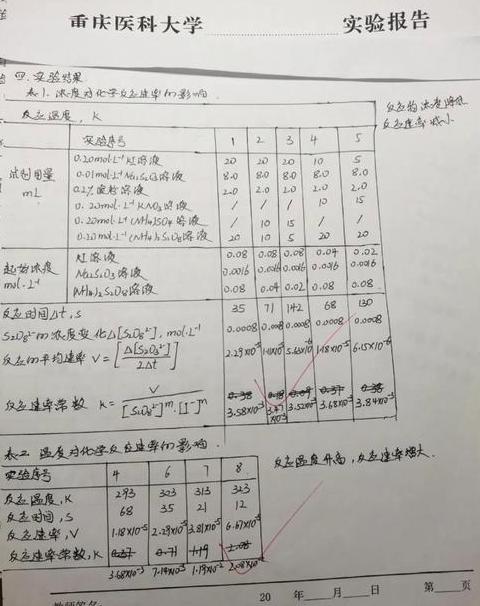 重庆医科大学 实验报告
四.实验结果
表1.浓度对化学反应速率的影响.
反应物浓度降低
反应速率减小
反应温度, K
实验序号 1 2 3 4 5
试剂用量 mL
0.20mol·L⁻¹ KI溶液 20 20 20 10 5
0.01mol·L⁻¹ Na₂S₂O₃溶液 8.0 8.0 8.0 8.0 8.0
0.2% 淀粉溶液 2.0 2.0 2.0 2.0 2.0
0.20mol·L⁻¹ KNO₃溶液 / / / 10 15
0.20mol·L⁻¹ (NH₄)₂SO₄溶液 / 10 15 / /
0.20mol·L⁻¹ (NH₄)₂S₂O₈溶液 20 10 5 20 20
起始浓度 mol·L⁻¹
KI溶液 0.08 0.08 0.08 0.04 0.02
Na₂S₂O₃溶液 0.0016 0.0016 0.0016 0.0016 0.0016
(NH₄)₂S₂O₈溶液 0.08 0.04 0.02 0.08 0.08
反应时间Δt, s 35 71 142 68 130
S₂O₈²⁻的浓度变化Δ[S₂O₈²⁻], mol·L⁻¹ 0.0008 0.0008 0.0008 0.0008 0.0008
反应的平均速率 V=[Δ[S₂O₈²⁻]/2Δt] 2.29×10⁻⁵ 5.63×10⁻⁶ 1.18×10⁻⁵ 6.15×10⁻⁶
反应速率常数 K=V/[S₂O₈²⁻]ᵐ·[I⁻]ⁿ 0.38 0.18 0.09 0.37 0.38
3.58×10⁻³ 3.47×10⁻³ 3.52×10⁻³ 3.68×10⁻³ 3.84×10⁻³
表二 温度对化学反应速率的影响.
反应温度升高,反应速率增大.
实验序号 4 6 7 8
反应温度, K 293 323 313 323
反应时间, S 68 35 21 12
反应速率, V 1.18×10⁻⁵ 2.29×10⁻⁵ 3.81×10⁻⁵ 6.67×10⁻⁵
反应速率常数, K 0.37 0.71 1.19 2.08
3.68×10⁻³ 7.14×10⁻³ 1.19×10⁻² 2.08×10⁻²
教师签名:
20 年 月 日 第 页